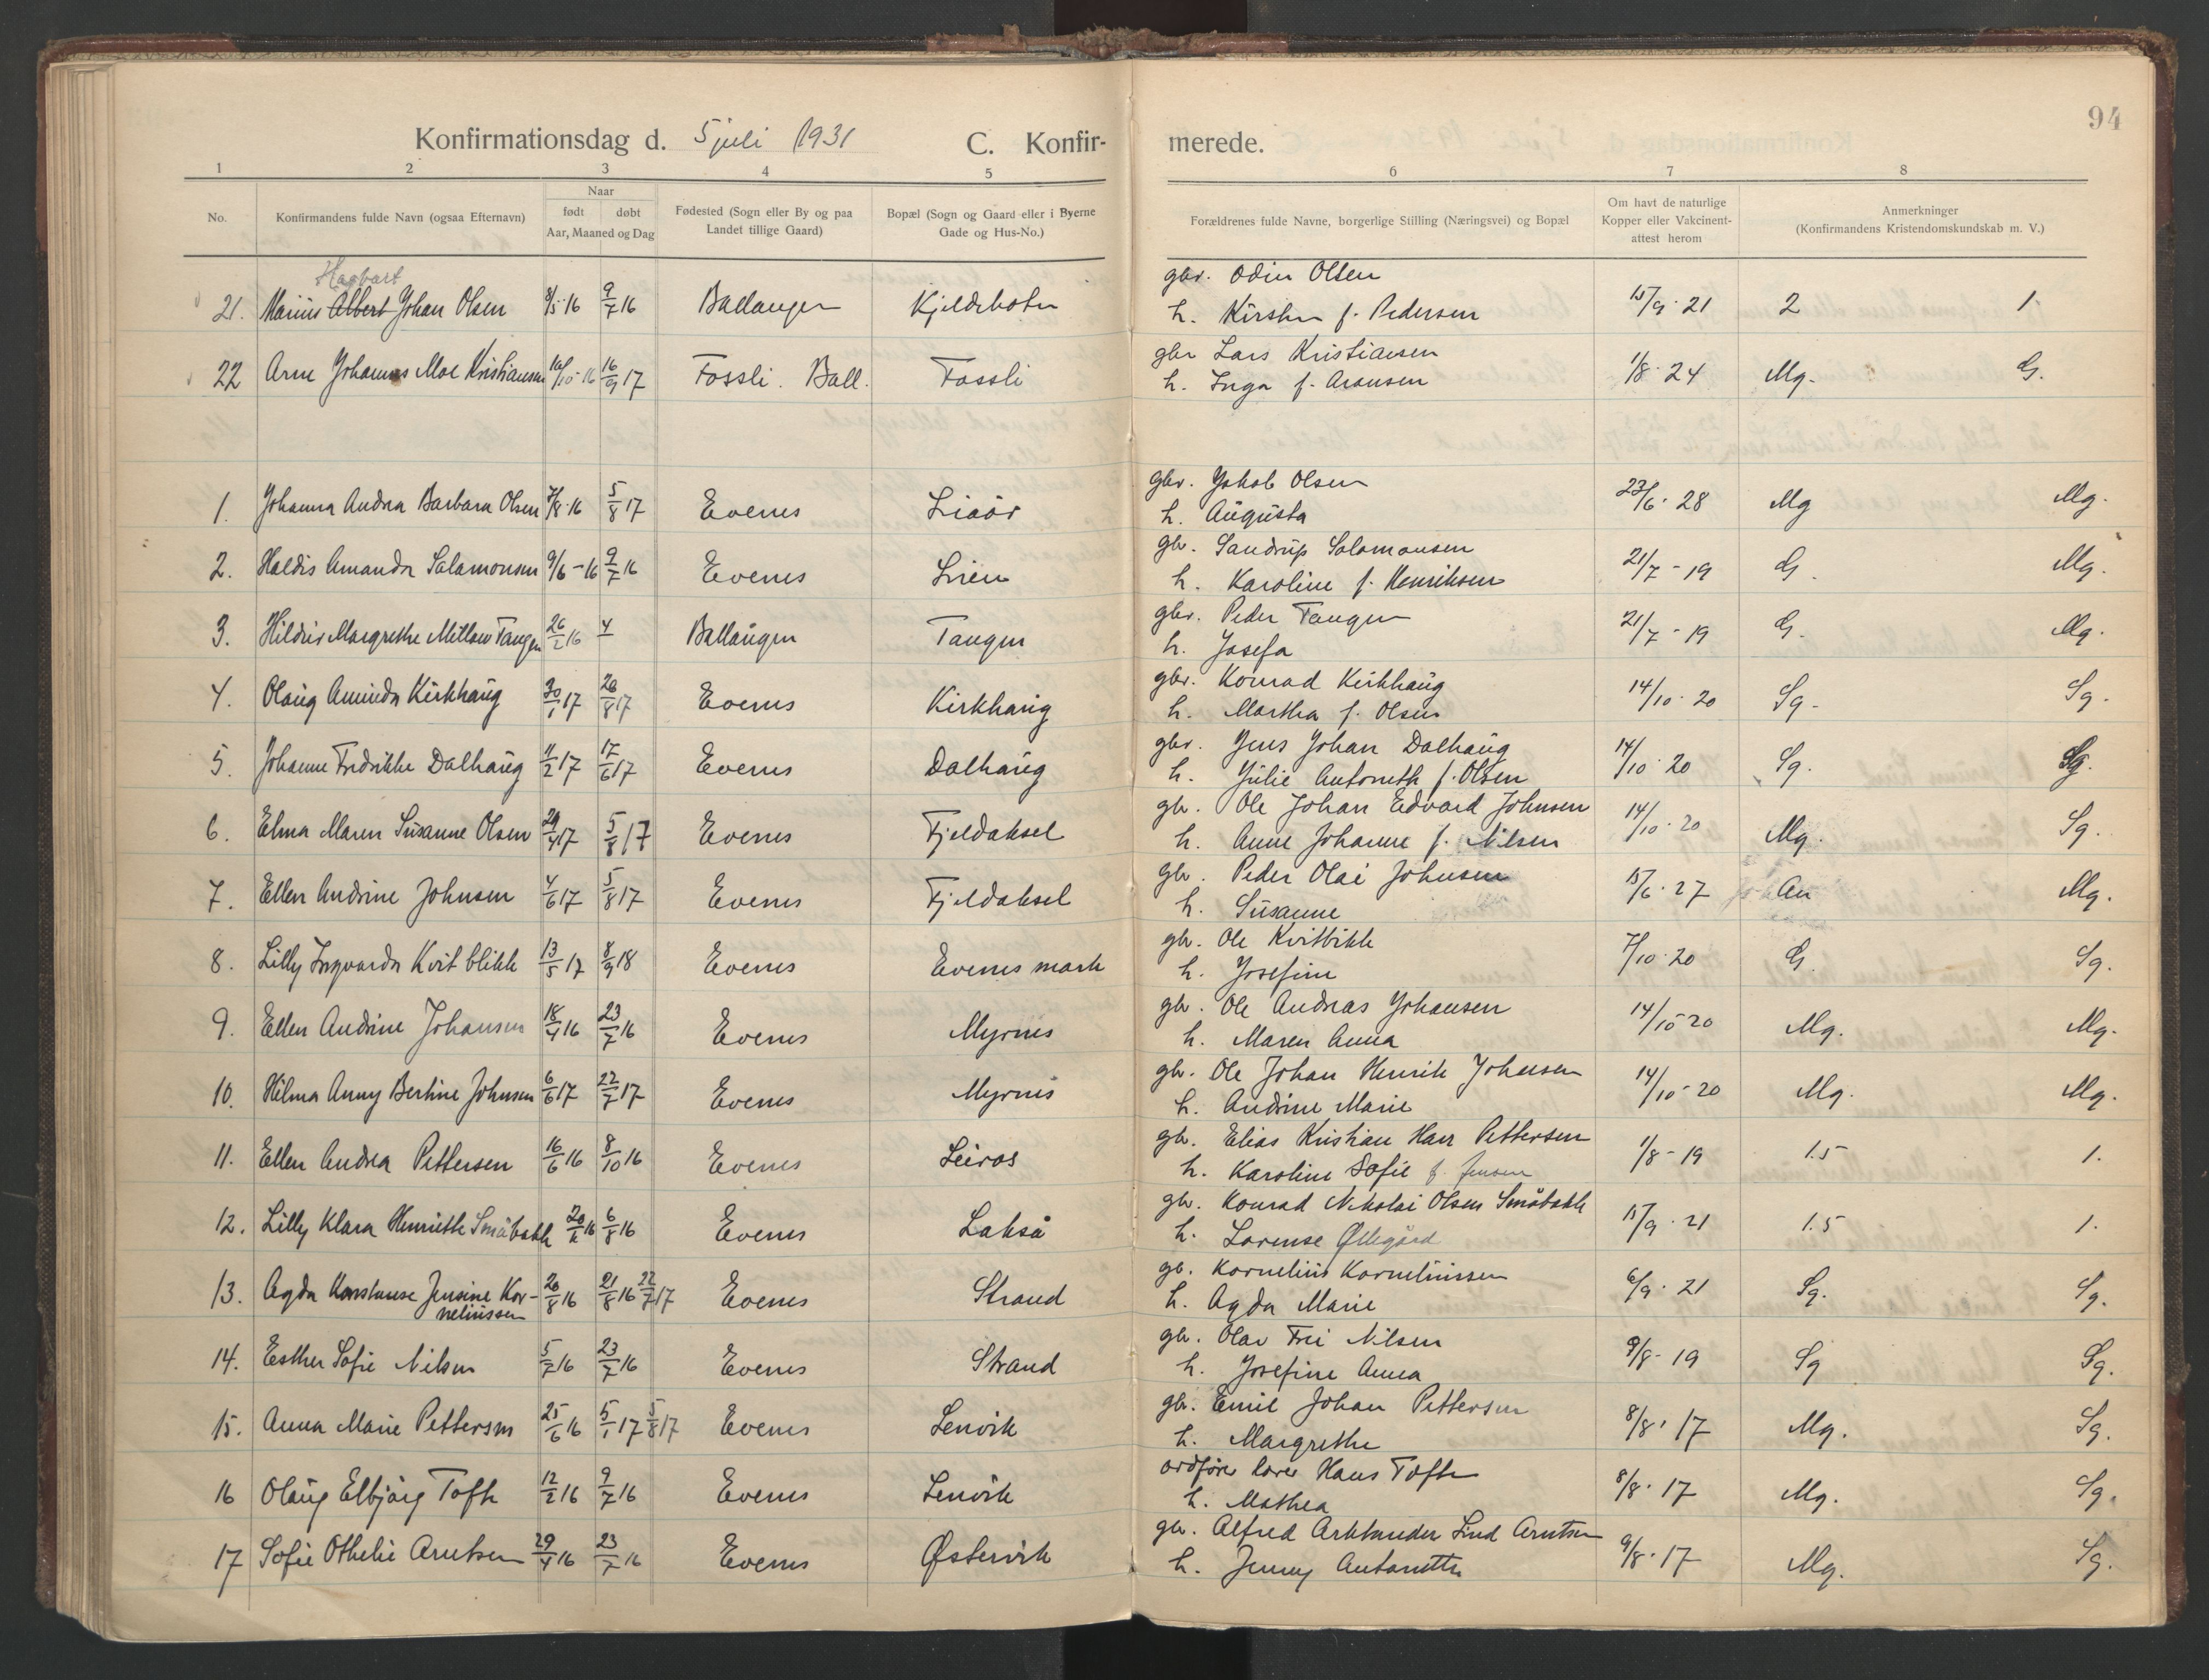 94
Konfirmationsdag d. 5 juli 1931 C. Konfir- merede.
1 2 3 4 5 6 7 8
No. Konfirmandens fulde Navn (ogsaa Efternavn) Naar født døbt Aar, Maaned og Dag Fødested (Sogn eller By og paa Landet tillige Gaard) Bopæl (Sogn og Gaard eller i Byerne Gade og Hus-No.) Forældrenes fulde Navne, borgerlige Stilling (Næringsvei) og Bopæl Om havt de naturlige Kopper eller Vakcinent- attest herom Anmerkninger (Konfirmandens Kristendomskundskab m. V.)
Hagbart gbr. Odin Olsen
21. Marius Albert Johan Olsen 8/5 16 9/7 16 Ballangen Kjeldebotn h. Kirsten f. Pedersen 15/9 · 21 2 1
gbr Lars Kristiansen
22 Arne Johannes Moe Kristiansen 10 - 16 16/9 17 Fossli. Ball. Fossli h. Inga f. Aronsen 1/8 · 24 Mg. G.
gbr. Jakob Olsen
1. Johanna Andrea Barbara Olsen 7/8 16 5/8 17 Evenes Liaår h. Augusta 23/6 · 28 Mg Mg.
gbr. Sandrup Salomonsen
2. Haldis Amanda Salamonsen 9/6 - 16 9/7 16 Evenes Lien h. Karoline f. Henriksen 21/7 - 19 G. Mg.
gbr. Peder Tangen
3. Margrethe Tangen 26/2 16 4 Ballangen Tangen h. Josefa 21/7 - 19 G. Mg.
gbr. Konrad Kirkhaug
4. Olaug Aminda Kirkhaug 30/1 17 26/8 17 Evenes Kirkhaug h. Martha f. Olsen 14/10 · 20 Sg. Sg.
gbr. Jens Johan Dalhaug
5. Johanne Fredrikke Dalhaug 11/2 17 17/6 17 Evenes Dalhaug h. Julie Antonette f. Olsen 14/10 · 20 Sg. Sg.
gbr. Ole Johan Edvard Johnsen
6. Elma Maren Susanne Olsen 29/4 17 5/8 17 Evenes Fjeldaksel h. Anne Johanne f. Nilsen 14/10 · 20 Mg. Sg.
gbr. Peder Olai Johnsen
7. Ellen Andrine Johnsen 4/6 17 5/8 17 Evenes Fjeldaksel h. Susanne 15/6 · 27 Mg.
gbr. Ole Kvitblikk
8. Lilly Ingvarda Kvitblikk 13/5 17 8/9 18 Evenes Evenesmark h. Josefine 7/10 · 20 G. Sg.
gbr. Ole Andreas Johansen
9. Ellen Andrine Johansen 18/4 16 23/7 16 Evenes Myrnes h. Maren Anna 14/10 - 20 Mg. Mg.
gbr. Ole Johan Henrik Johnsen
10. Hilma Anny Bertine Johnsen 6/6 17 22/7 17 Evenes Myrnes h. Andrine Marie 14/10 - 20 Mg. Mg.
gbr. Elias Kristian Hans Pettersen
11. Ellen Andrea Pettersen 16/6 16 8/10 16 Evenes Leiros h. Karoline Sofie f. Jensen 1/8 - 19 1.5 1.
gbr. Konrad Nikolai Olsen Småbakk
12. Lilly Klara Henriette Småbakk 20 16 6/8 16 Evenes Lakså h. Lorense 15/9 · 21 1.5 1.
gbr. Kornelius Korneliussen
13. Agda Konstanse Jensine Kor-
neliussen 20/8 16 21/8 16 22/7 17 Evenes Strand h. Agda Marie 6/9 · 21 Sg. Sg.
gbr. Olav Frei Nilsen
14. Esther Sofie Nilsen 5/7 16 23/7 16 Evenes Strand h. Josefine Anna 9/8 - 19 Sg Sg.
gbr. Emil Johan Pettersen
15. Anna Marie Pettersen 25/6 16 5/1 17 5/8 17 Evenes Lenvik h. Margrethe 8/8 · 17 Mg. Sg.
ordfører lærer Hans Tofte
16 Olaug Elbjørg Tofte 12/2 16 9/7 16 Evenes Lenvik h. Mathea 8/8 · 17 Mg. Sg.
gbr. Alfred Lind Arntsen
17 Sofie Othelie Arntsen 29/4 16 23/7 16 Evenes Østervik h. Jenny Antonette 9/8 · 17 Mg. Sg.